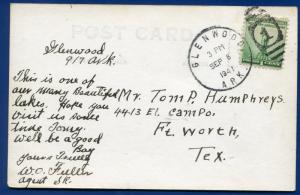 POST CARD
Glenwood
917 Ark.
This is one of
our many Beautiful
lakes. Hope you
visit us some
time Tomy.
will be a good
Boy
yours Truly
W.O. Fuller
agent
GLENWOOD
3 PM
SEP 8
194
ARK.
Mr. Tom P. Humphreys
4413 El Campo.
Ft Worth,
Tex.